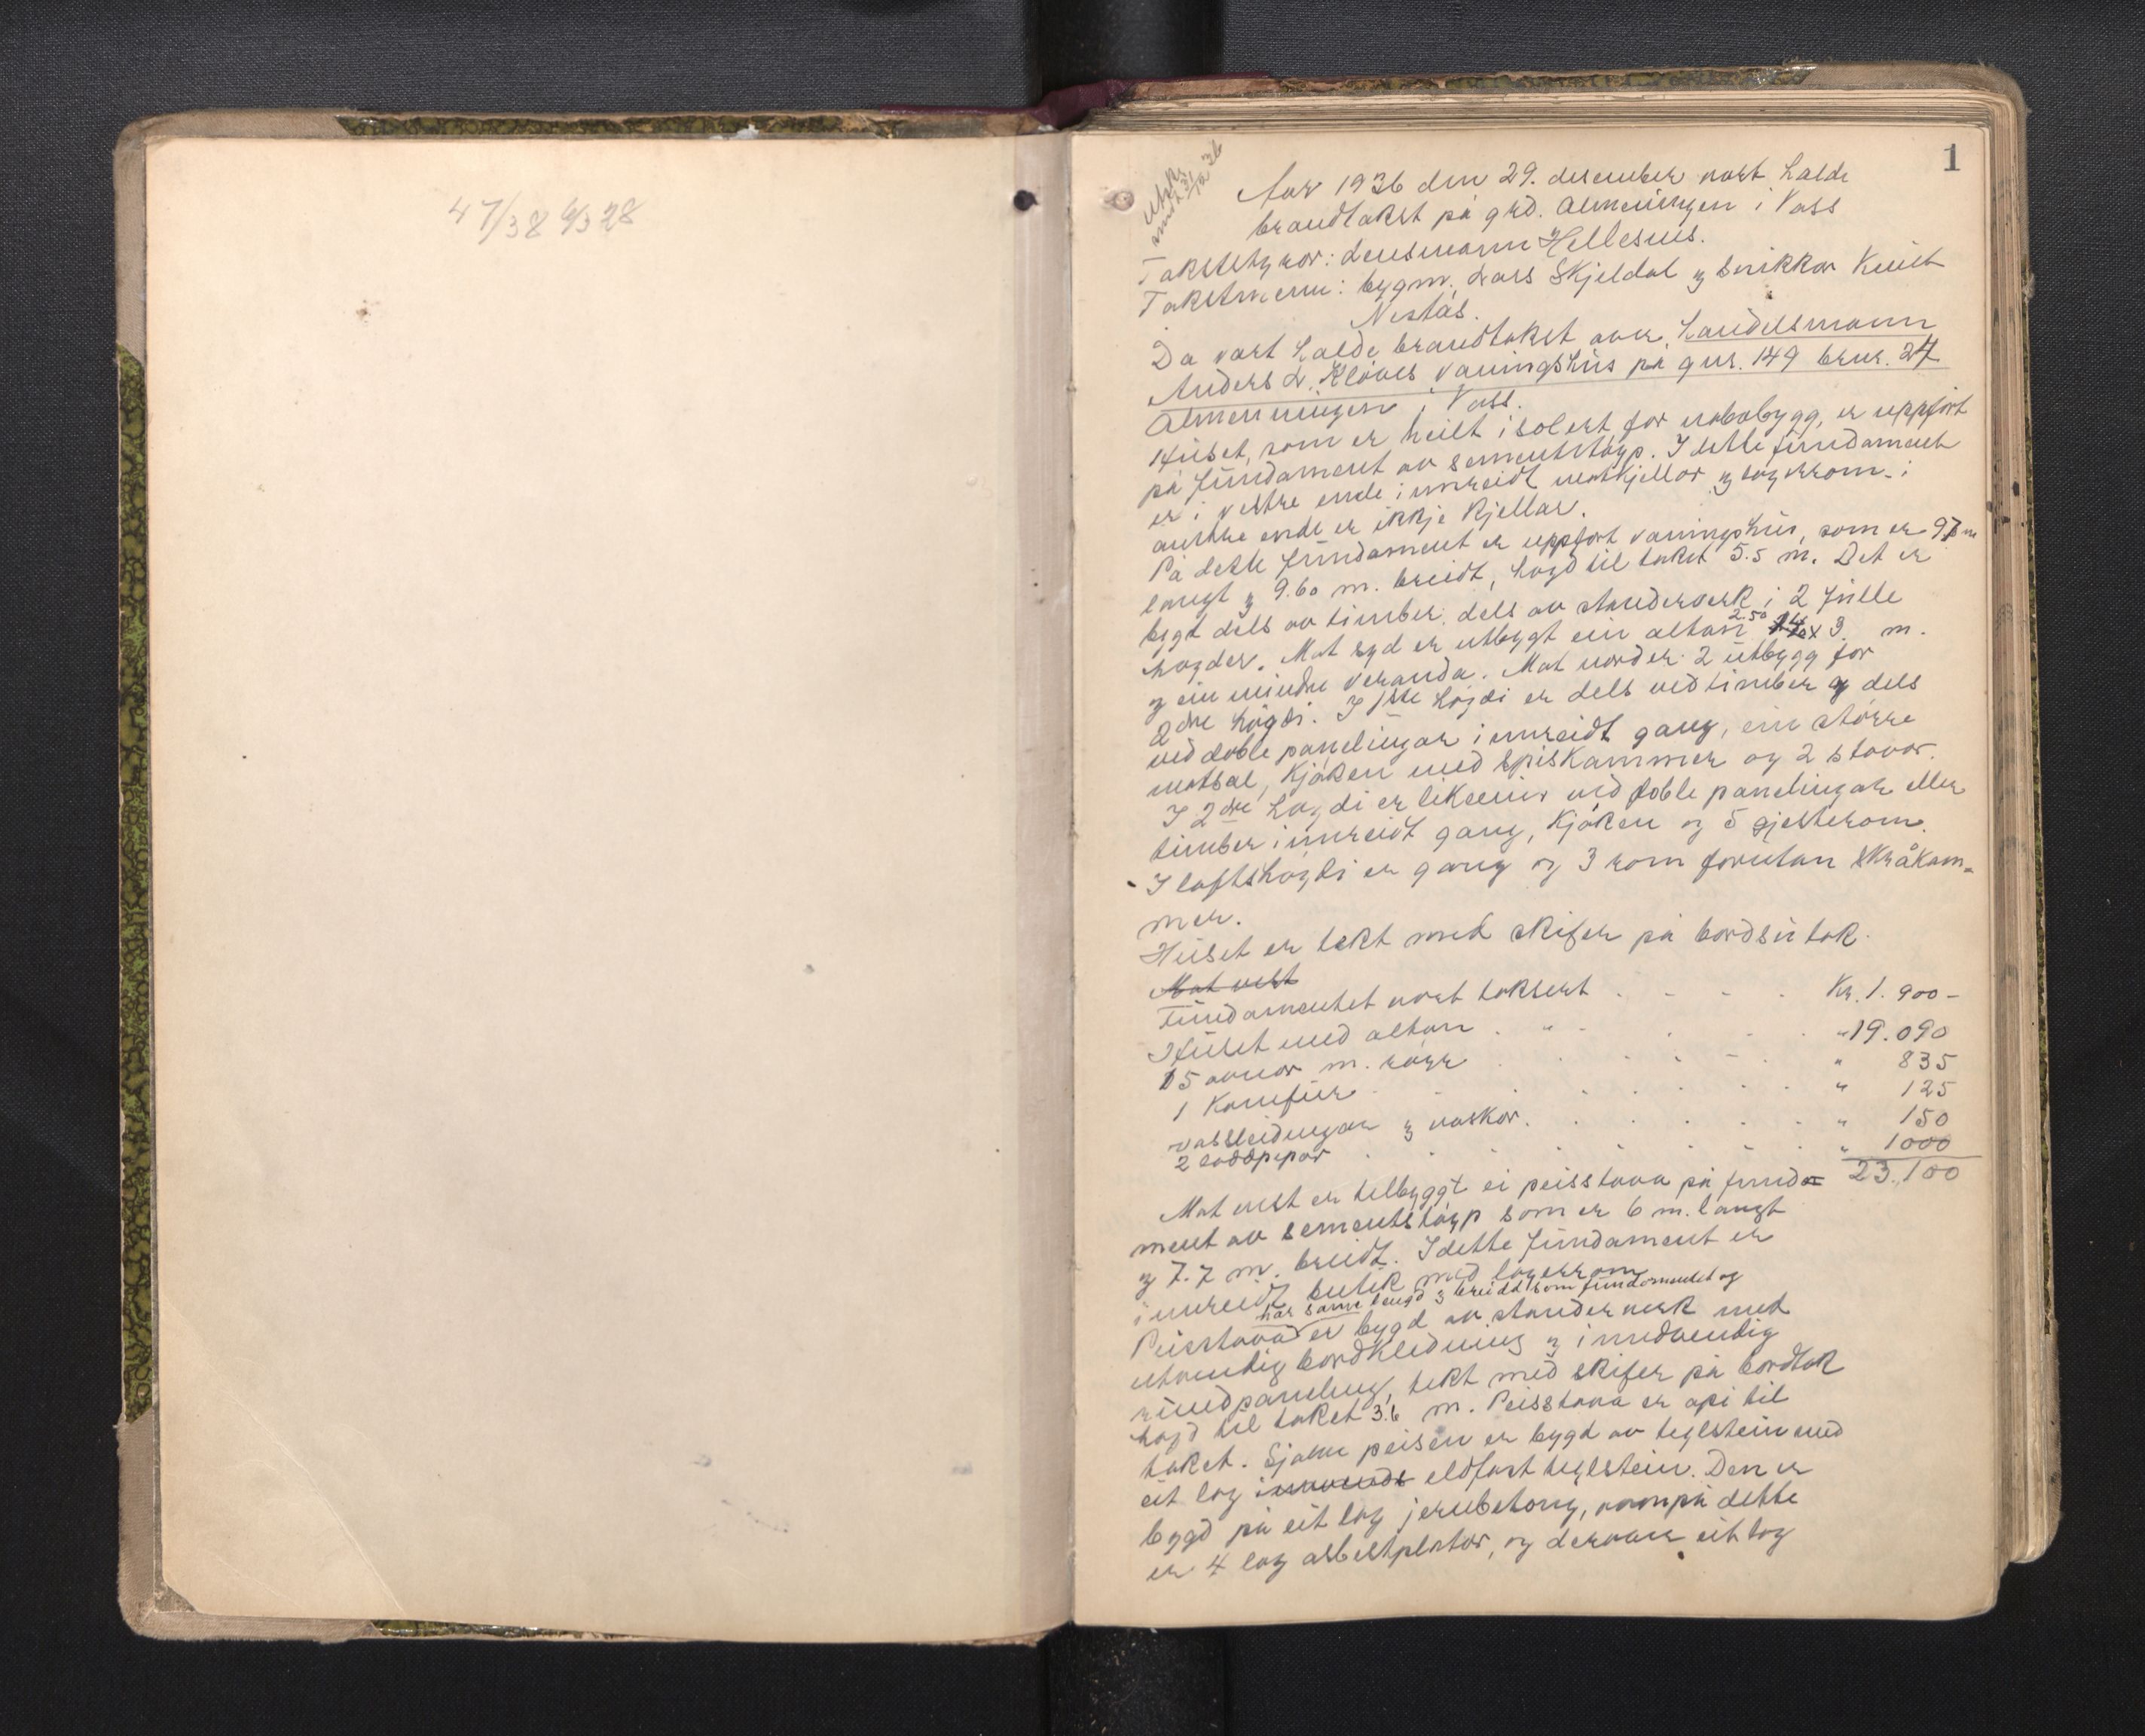 47/38 6/3 28
1
Utskr.
sendt 31/12 36
Aar 1936 den 29. desember vart halde
brandtakst på grd. Almenningen i Voss
Takststyrar: Lensmann Hellesnes.
Takstmenn: bygm. Lars Skjeldal og snikkar Knut
Nestås.
Da vart halde brandtakst over handelsmann
Anders L. Kløves vaaningshus på gnr. 149 brnr. 24
Almenningen i Voss.
Huset, som er heilt isolert for nabobygg, er uppført
på fundament av sementstøyp. I dette fundament
er i vestre ende innreidt matkjellar og lagerrom. i
austre ende er ikkje kjellar.
På dette fundament er uppført vaaningshus, som er 9.7 m
langt og 9.60 m. breidt, høgd til taket 5.5 m. Det er
bygt dels av timber, dels av standerverk i 2 fulle
høgder. Mot syd er utbygt ein altan 2.50 x 3 m.
og ein mindre veranda. Mot nord er 2 utbygg for
2dre høgdi. I 1ste høgdi er dels ved timber og dels
ved doble panelingar innreidt gang, ein større
matsal, kjøken med spiskammer og 2 stovor.
I 2dre høgdi er likeeins ved doble panelingar eller
timber innreidt gang, kjøken og 5 gjesterom.
I loftshøgdi er gang og 3 rom forutan skråkam-
mer.
Huset er tekt med skifer på bordsutak.
Mot vest
Fundamentet vart taksert . . . . Kr. 1.900-
Huset med altan . " . . . . " 19.090
15 omnar m. røyr . . . . . " 835
1 Komfur . . . . . " 125
vassleidningar og vaskar. . . . . . " 150
2 loddpipor . . . . . " 1000
23.100
Mot vest er tilbyggt ei peisstova på funda-
ment av sementstøyp som er 6 m. langt
og 7.7 m. breidt. I dette fundament er
innreidt butik med lagerrom
har same lengd og breidd som fundamentet og
Peisstova er bygd av standerverk med
utvendig bordkledning og innvendig
rundpaneling, tekt med skifer på bordtak
høgd til taket 3.6 m. Peisstova er opi til
taket. Sjølve peisen er bygd av teglstein med
eit lag innvends eldfast teglstein. Den er
bygd på eit lag jernbetong, ovanpå dette
er 4 lag asbestplator, og derover eit lag